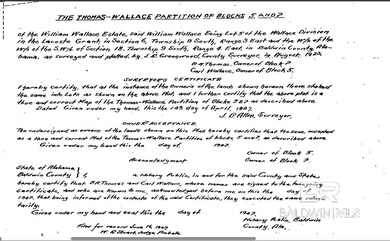 THE THOMAS-WALLACE PARTITION OF BLOCKS 5 AND 7
of the William Wallace Estate, said William Wallace being Lot 5 of the Wallace Division
in the Lacosta Grant in Section 6, Township 9 South, Range 3 East and the W½ of the
W½ of the S.W¼ of Section 18, Township 9 South, Range 4 East, in Baldwin County Ala-
bama, as surveyed and platted by County Surveyor, in August, 1903.
B.R. Thomas, Owner of Block 7
Carl Wallace, Owner of Block 5.
SURVEYOR'S CERTIFICATE
I hereby certify, that at the instance of the Owners of the lands shown hereon, I have platted
the same into Lots as shown on the above Plat, and I further certify that the above plat is a
true and correct Map of the Thomas-Wallace Partition of Blocks 5&7 as described above
Dated Given under my hand, this the 14th day of April, 1907.
J.D. Allen, Surveyor.
OWNERS ACCEPTANCE
The undersigned as owners of the lands shown on this Plat hereby certify that the same, accepted
as a true and correct Plat of the Thomas-Wallace Partition of blocks 5 and 7, as described above.
Given under my hand this the day of 1907.
Owner of Block 5.
Acknowledgment Owner of Block 7.
State of Alabama
Baldwin County I, a Notary Public, in and for the said County and State,
hereby certify that B.R. Thomas and Carl Wallace, whose names are signed to the foregoing
Certificate, and who are known to me, acknowledged before me on this the day of
1907, that being informed of the contents of the said Certificate, they executed the same volun-
tarily.
Given under my hand and seal this the day of 1907.
Notary Public, Baldwin
County, Ala.
Filed for record June 14, 1907
Judge Probate
BALDWIN MLS